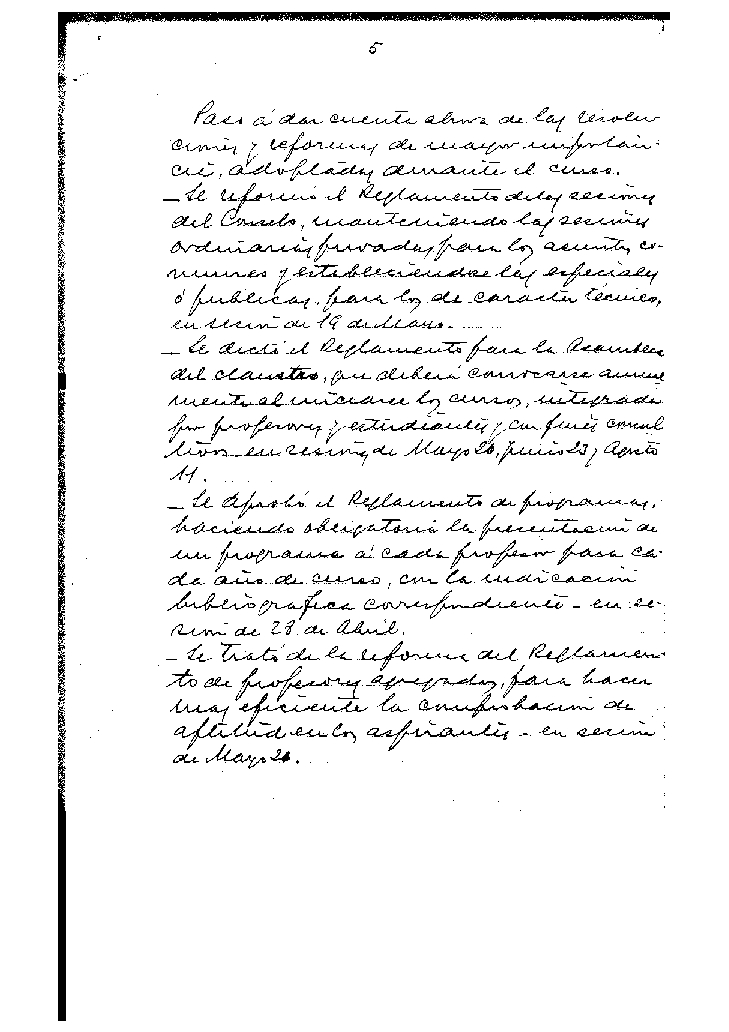 5
Paso á dar cuenta ahora de las resolu-
ciones y reformas de mayor importan-
cia, adoptadas durante el curso.
— Se reformó el Reglamento de las sesiones
del Consejo, manteniendo las sesiones
ordinarias privadas para los asuntos co-
munes y estableciendose las especiales
ó publicas, para los de caracter técnico,
en sesión de 19 de Marzo.
— Se dictó el Reglamento para la Asamblea
del claustro, que deberá convocarse anual
mente al iniciarse los cursos, integrada
por profesores y estudiantes y con fines consul
tivos en sesiones de Mayo 20, Junio 23 y Agosto
11.
— Se aprobó el Reglamento de programas,
haciendo obligatoria la presentación de
un programa á cada profesor para ca-
da año de curso, con la indicación
bibliografica correspondiente - en se-
sión de 28 de Abril.
— Se trató de la reforma del Reglamen-
to de profesores agregados, para hacer
mas eficiente la comprobación de
aptitud en los aspirantes - en sesión
de Mayo 20.